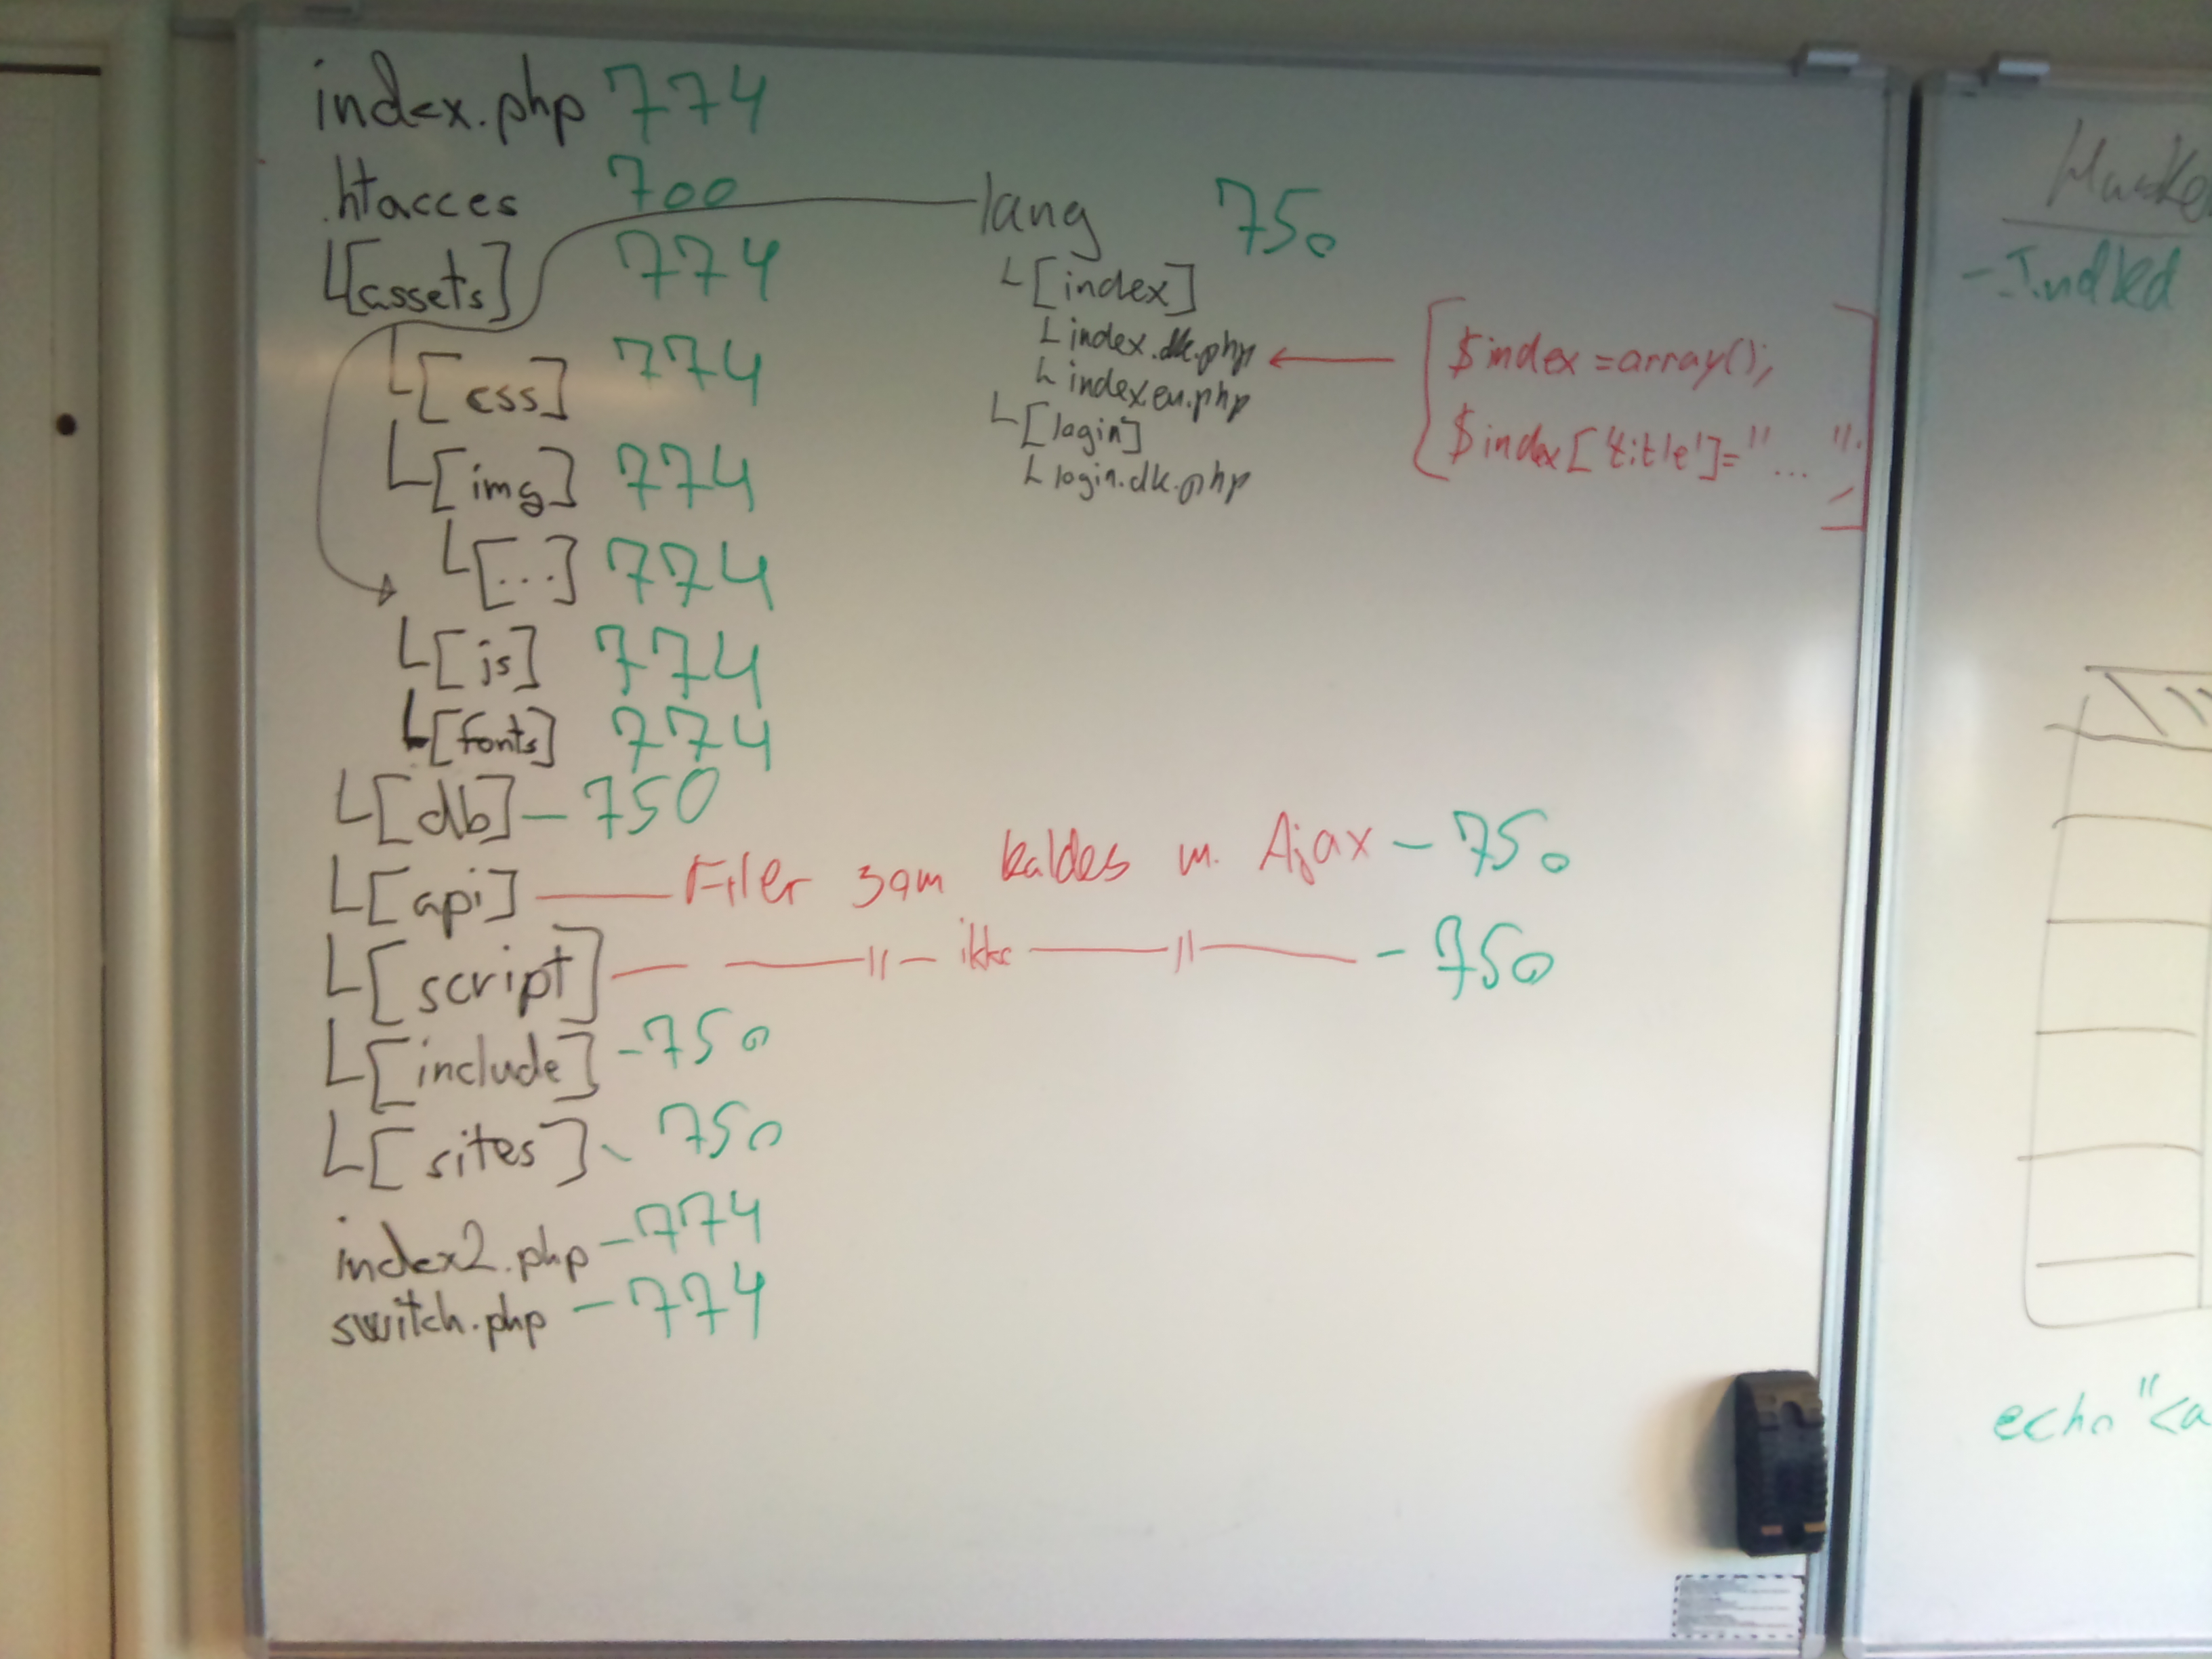 index.php 774
.htacces 700
└[assets] 774
└[css] 774
└[img] 774
└[...] 774
└[js] 774
└[fonts] 774
└[db] – 750
└[api] — Filer som kaldes m. Ajax – 750
└[script] — — 〃 — ikke — 〃 — – 750
└[include] – 750
└[sites] - 750
index2.php – 774
switch.php – 774
lang 750
└[index]
└ index.dk.php
└ index.en.php
└[login]
└ login.dk.php
[$index = array();
$index['title']="... ";]
- Indkød
echo "<a